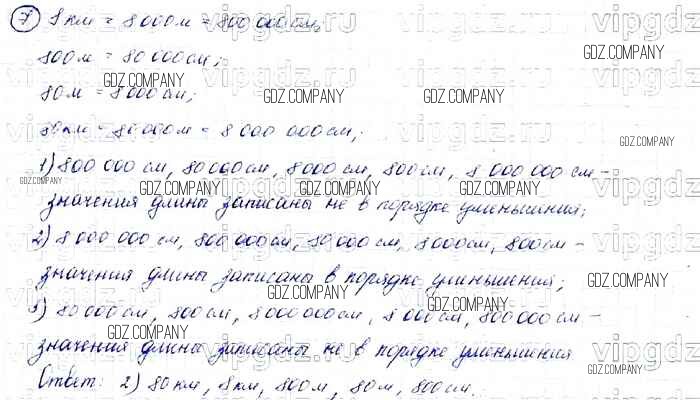 7) 8 км = 8 000 м = 800 000 см;
800 м = 80 000 см;
80 м = 8 000 см;
80 км = 80 000 м = 8 000 000 см;
1) 800 000 см, 80 000 см, 8000 см, 800 см, 8 000 000 см –
значения длины записаны не в порядке уменьшения;
2) 8 000 000 см, 800 000 см, 80 000 см, 8 000 см, 800 см –
значения длины записаны в порядке уменьшения;
3) 80 000 см, 800 см, 8 000 000 см, 8 000 см, 800 000 см –
значения длины записаны не в порядке уменьшения
Ответ: 2) 80 км, 8 км, 800 м, 80 м, 800 см.
vipgdz.ru
GDZ.COMPANY